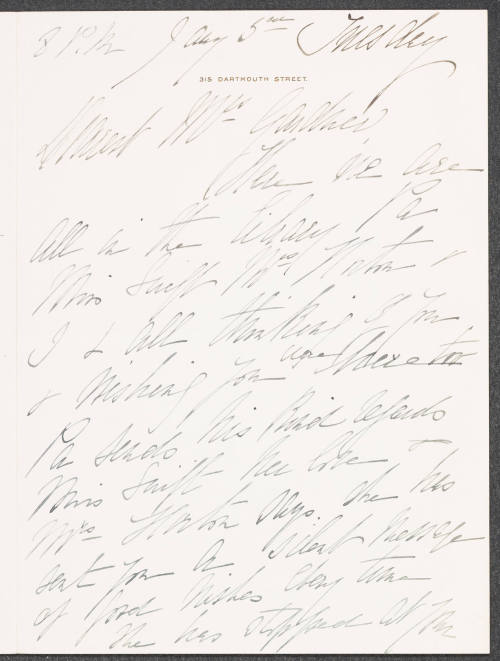 8 P.M. Jany 5th Tuesday
315 DARTMOUTH STREET.
Dearest Mrs Gardner,
Here we are
all in the Library Pa
Miss Swift Mrs Horton &
I & all thinking of you
& wishing you were here too
Pa sends his kind regards
Miss Swift her love &
Mrs Horton says she has
sent you a silent message
of good wishes every time
she has stopped at your